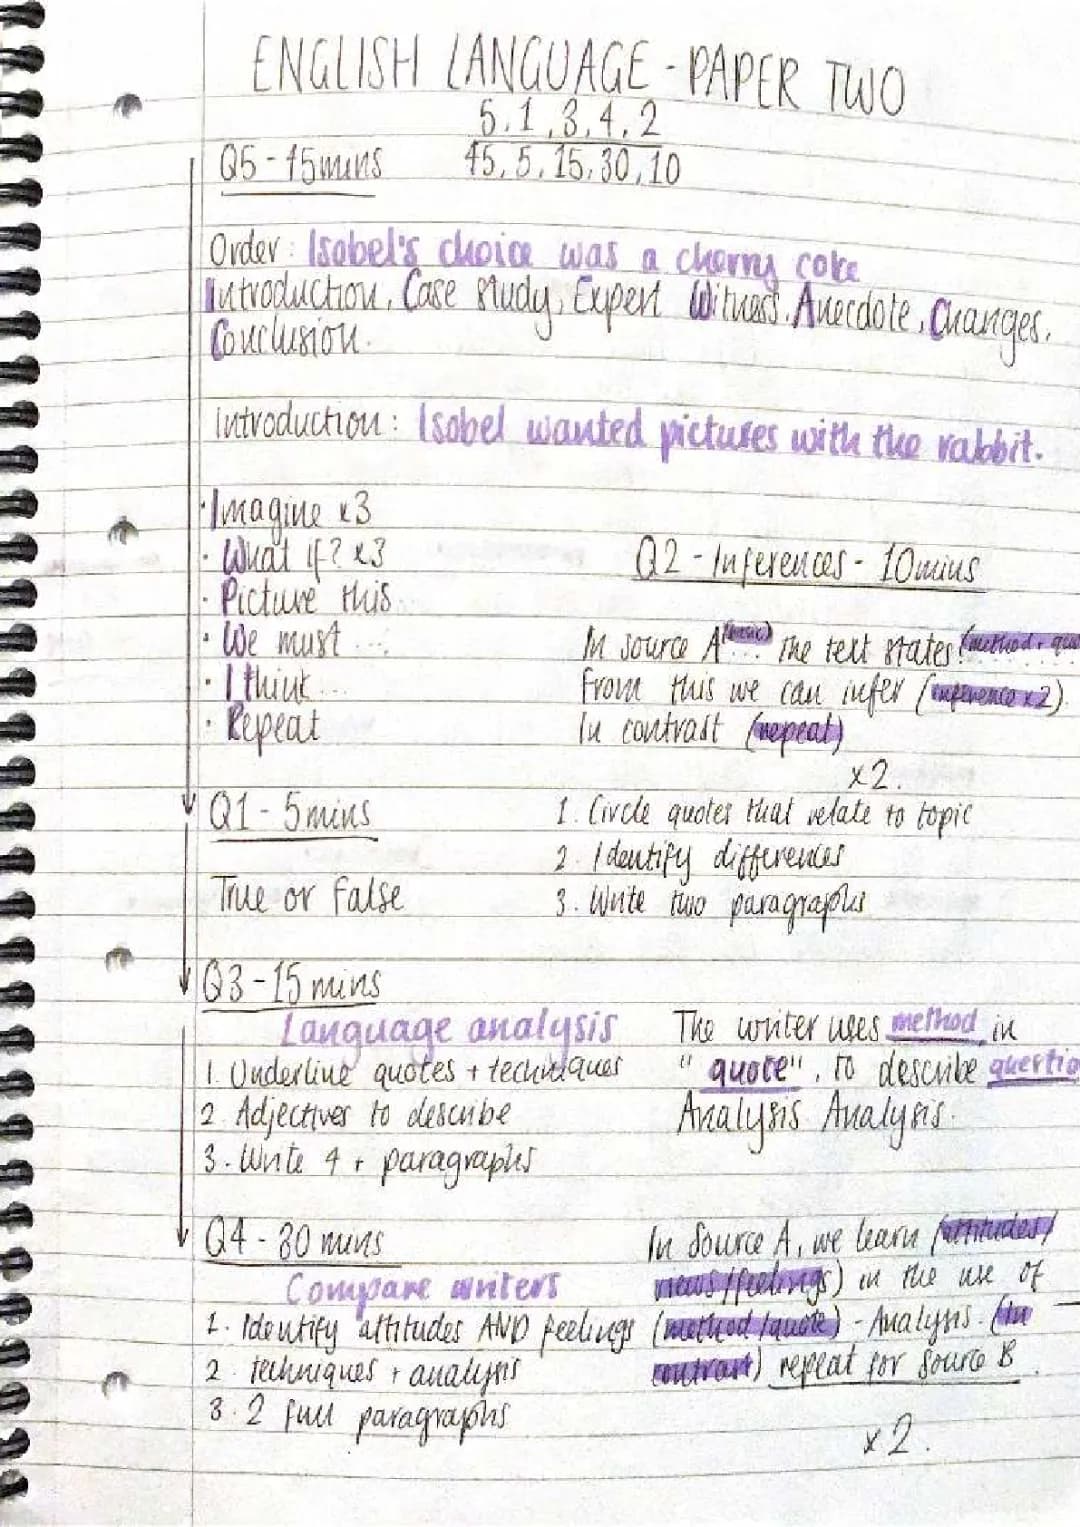 ENGLISH LANGUAGE - PAPER TWO
5, 1, 3, 4, 2
45, 5, 15, 30, 10
Q5 - 45mins
Order: Isobel's choice was a cherry coke
Introduction, Case study, Expert Witness, Anecdote, Changes,
Conclusion.
Introduction: Isobel wanted pictures with the rabbit.
· Imagine x3
· What if? x3
· Picture this
· We must ...
· I think ...
· Repeat
Q2 - Inferences - 10mins
In source A ... The text states (method +
From this we can infer (inference x2).
In contrast (repeat)
x2.
1. Circle quotes that relate to topic
2. Identify differences
3. Write two paragraphs
Q1 - 5mins
True or False
Q3 - 15 mins
Language analysis
1. Underline quotes + techniques
2. Adjectives to describe
3. Write 4 + paragraphs
The writer uses method in
"quote", to describe questio
Analysis Analysis.
Q4 - 30 mins
Compare writers
1. Identify attitudes AND feelings
2. techniques + analysis
3. 2 full paragraphs
In Source A, we learn (attitudes/
views/feelings) in the use of
(method/quote) - Analysis. (In
contrast) repeat for source B.
x2.